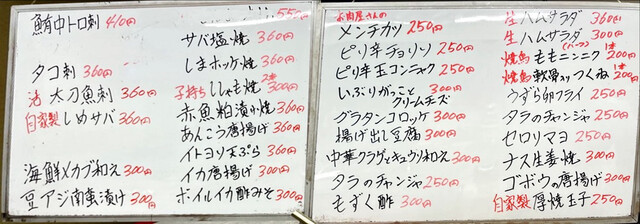 鮪中トロ刺 410円
タコ刺 360円
活 太刀魚刺 360円
自家製 しめサバ 360円
海鮮メカブ和え 300円
豆アジ南蛮漬け 300円
550円
サバ塩焼 360円
しまホッケ焼 360円
子持ちししゃも焼 2本 300円
赤魚粕漬け焼 360円
あんこう唐揚げ 360円
イトヨリ天ぷら 360円
イカ唐揚げ 300円
ボイルイカ酢みそ 300円
お肉屋さんの
メンチカツ 250円
ピリ辛チョリソ 250円
ピリ辛玉コンニャク 250円
いぶりがっこ 300円
クリームチーズ
グラタンコロッケ 300円
揚げ出し豆腐 300円
中華クラゲとキュウリ和え 300円
タラのチャンジャ 250円
もずく酢 300円
生ハムサラダ 360円
生ハムサラダ(ハーフ) 300円
焼鳥 ももニンニク 1本 200円
焼鳥 軟骨入りつくね 1本 200円
うずら卵フライ 250円
タラのチャンジャ 250円
セロリマヨ 250円
ナス生姜焼 300円
ゴボウの唐揚げ 300円
自家製 厚焼玉子 250円